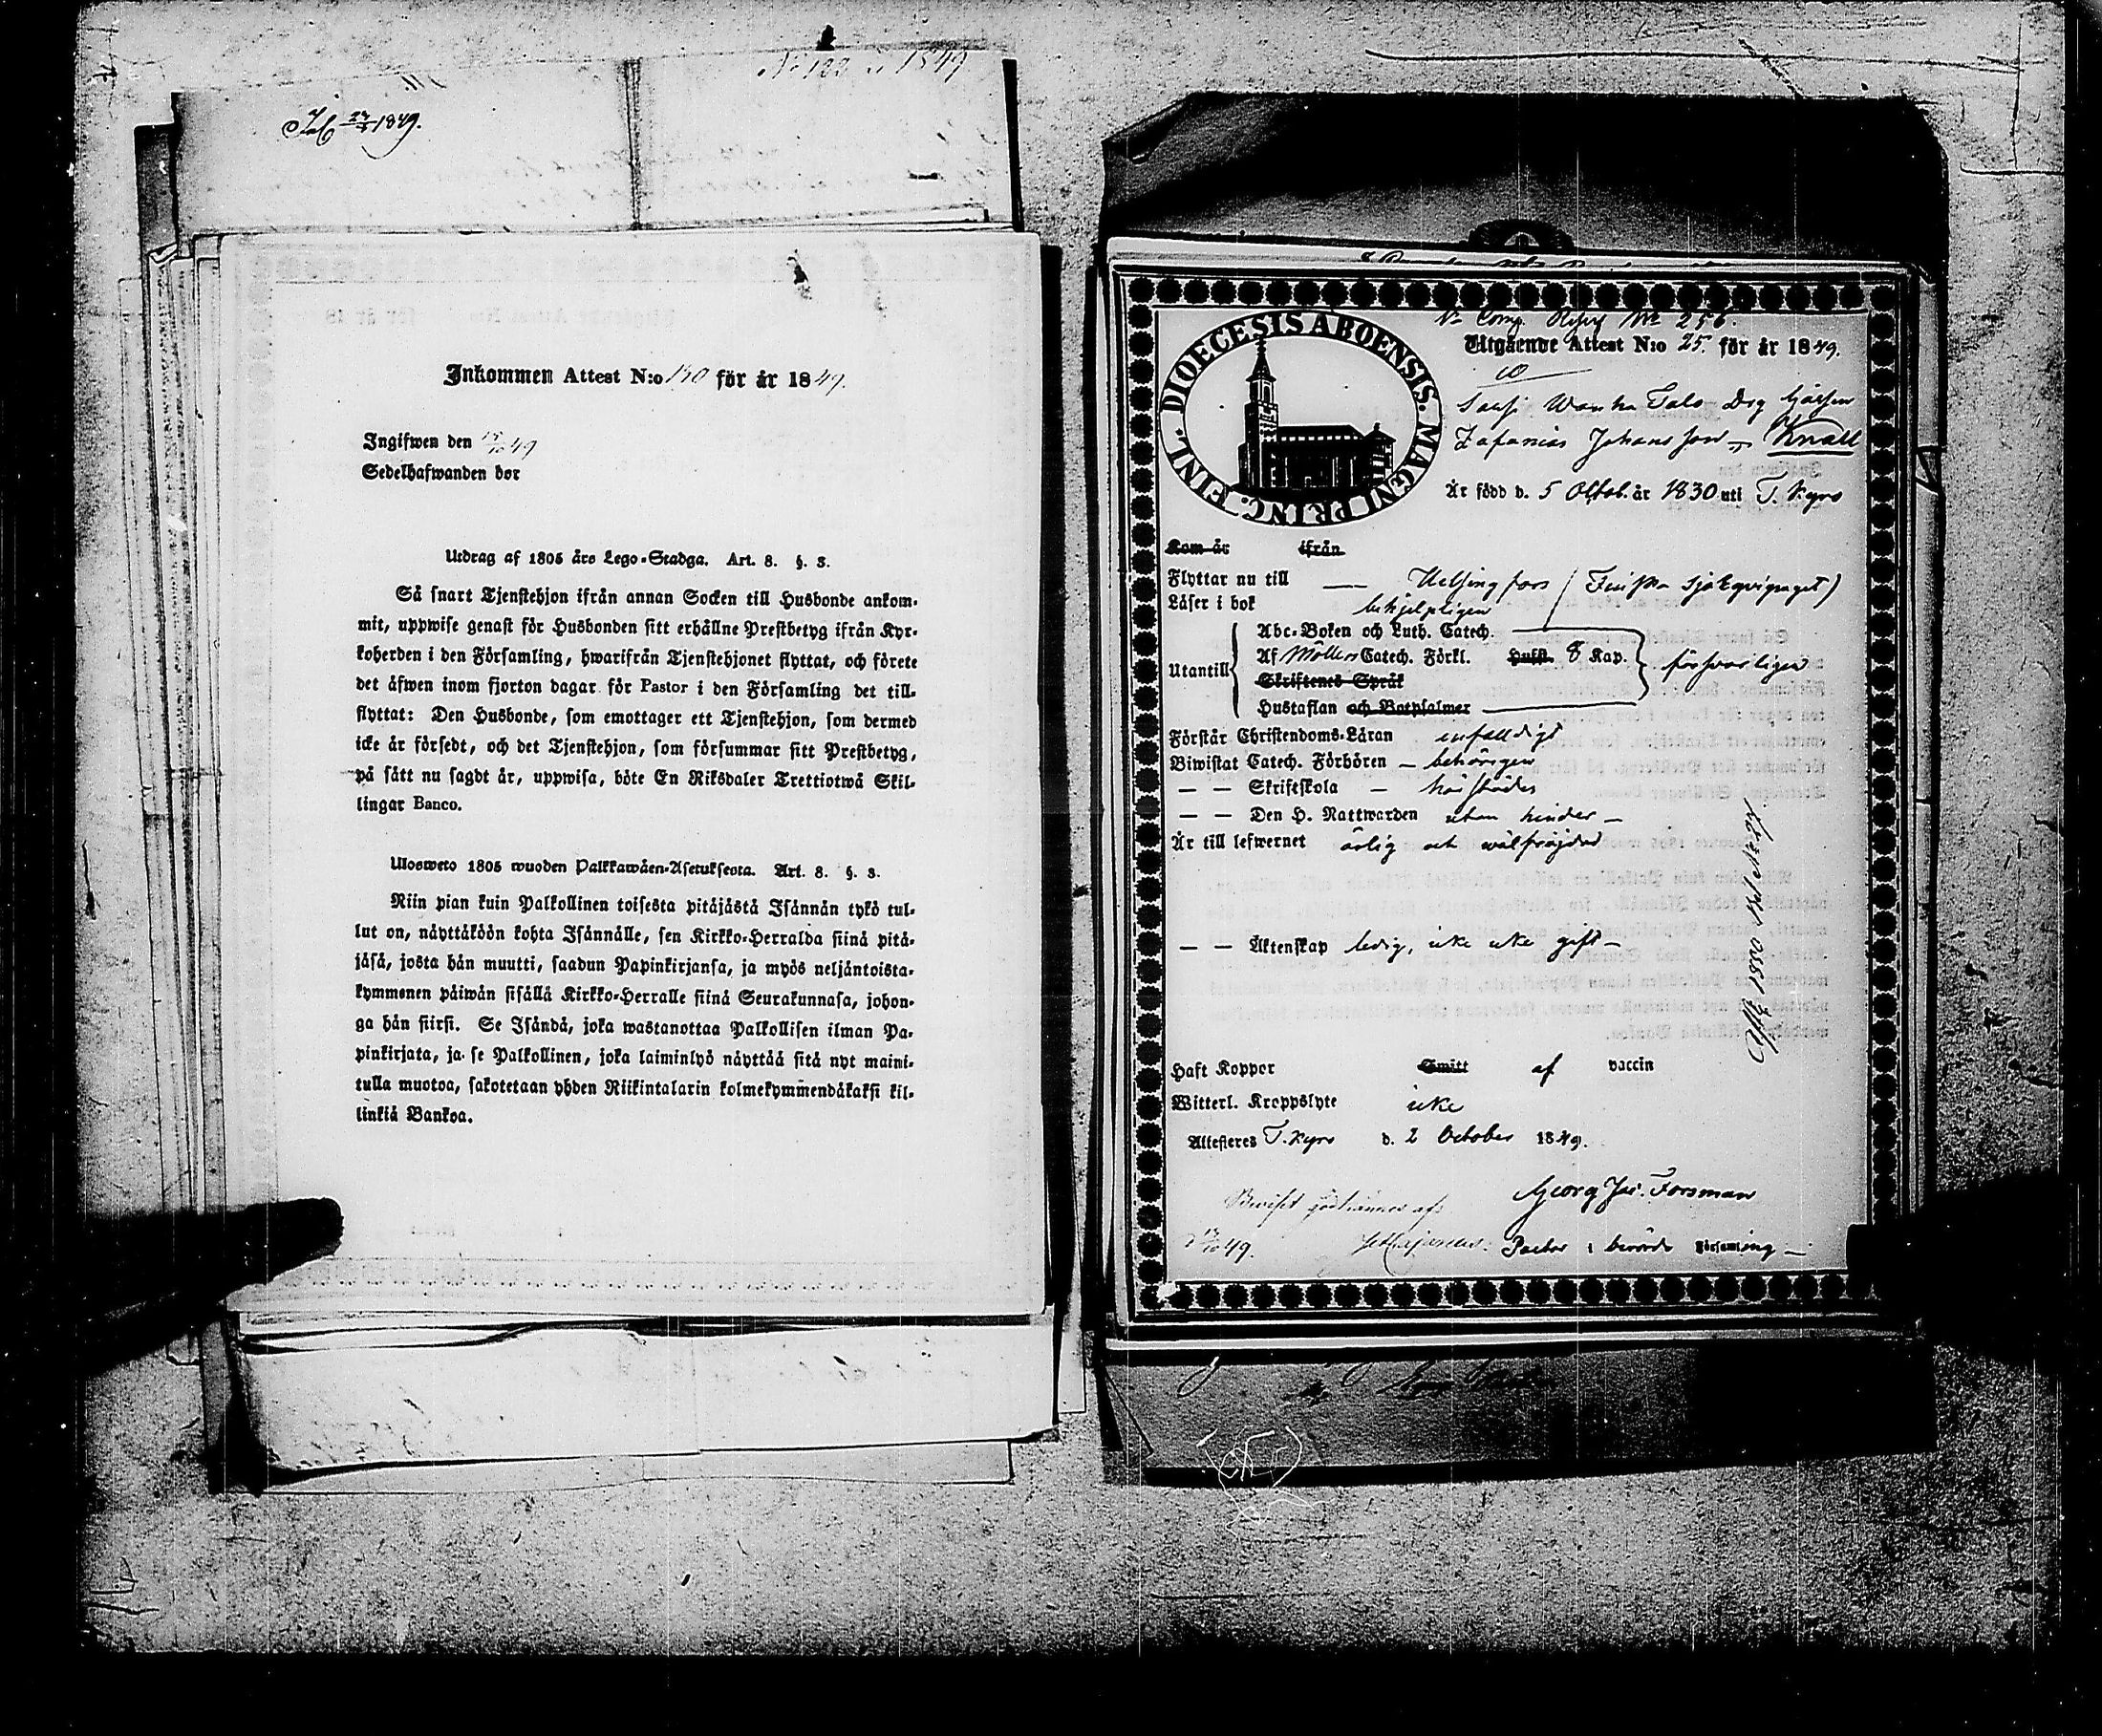 No 122 1849
1849.
Inkommen Attest N:o 130 för år 1849.
Ingifwen den 15/10 49
Sedelhafwanden bor
Utdrag af 1805 års Lego-Stadga. Art. 8. §. 3.
Så snart Tjenstehjon ifrån annan Socken till Husbonde ankom-
mit, uppwise genast för Husbonden sitt erhållne Prestbetyg ifrån Kyr-
koherden i den Församling, hwarifrån Tjenstehjonet flyttat, och förete
det äfwen inom fjorton dagar för Pastor i den Församling det till-
flyttat: Den Husbonde, som emottager ett Tjenstehjon, som dermed
icke är försedt, och det Tjenstehjon, som försummar sitt Prestbetyg,
på sätt nu sagdt är, uppwisa, böte En Riksdaler Trettiotwå Skil-
lingar Banco.
Ulosweto 1805 wuoden Palkkawäen-Asetuksesta. Art. 8. §. 3.
Niin pian kuin Palkollinen toisesta pitäjästä Isännän tykö tul-
lut on, näyttäköön kohta Isännälle, sen Kirkko-Herralda siinä pitä-
jäsä, josta hän muutti, saadun Papinkirjansa, ja myös neljäntoista-
kymmenen päiwän sisällä Kirkko-Herralle siinä Seurakunnasa, johon-
ga hän siirsi. Se Isändä, joka wastanottaa Palkollisen ilman Pa-
pinkirjata, ja se Palkollinen, joka laiminlyö näyttää sitä nyt maini-
tulla muotoa, sakotetaan yhden Riikintalarin kolmekym̃endäkaksi kil-
linkiä Bankoa.
DIOECESIS ABOENSIS. MAGNI PRINC. FINL.
Comp. No 256.
Utgående Attest N:o 25. för år 1849.
Wanha Talo Drg
Zafanias Johansson Knall
Är född d. 5 Octob. år 1830 uti T. Kyro
Kom år ifrån
Flyttar nu till Helsingfors (Finska Sjöeqvipaget)
Läser i bok behjelpligen
Abc-Boken och Luth. Catech.
Utantill Af Möllers Catech. Förkl. Husst. 8 Kap. försvarligen
Skriftenes Språk
Hustaflan och Botpsalmer
Förstår Christendoms-Läran enfaldigt
Biwistat Catech. Förhören – behörigen
— — Skriftskola –
— — Den H. Nattwarden utan hinder –
Är till lefwernet ärlig och wälfräjdad
— — Äktenskap ledig, icke gift –
1850
Haft Koppor Smitt af vaccin
Witterl. Kroppslyte icke
Attesteres T. Kyro d. 2 October 1849.
Georg Jac. Forsman
49. Pastor i berörde Församling –